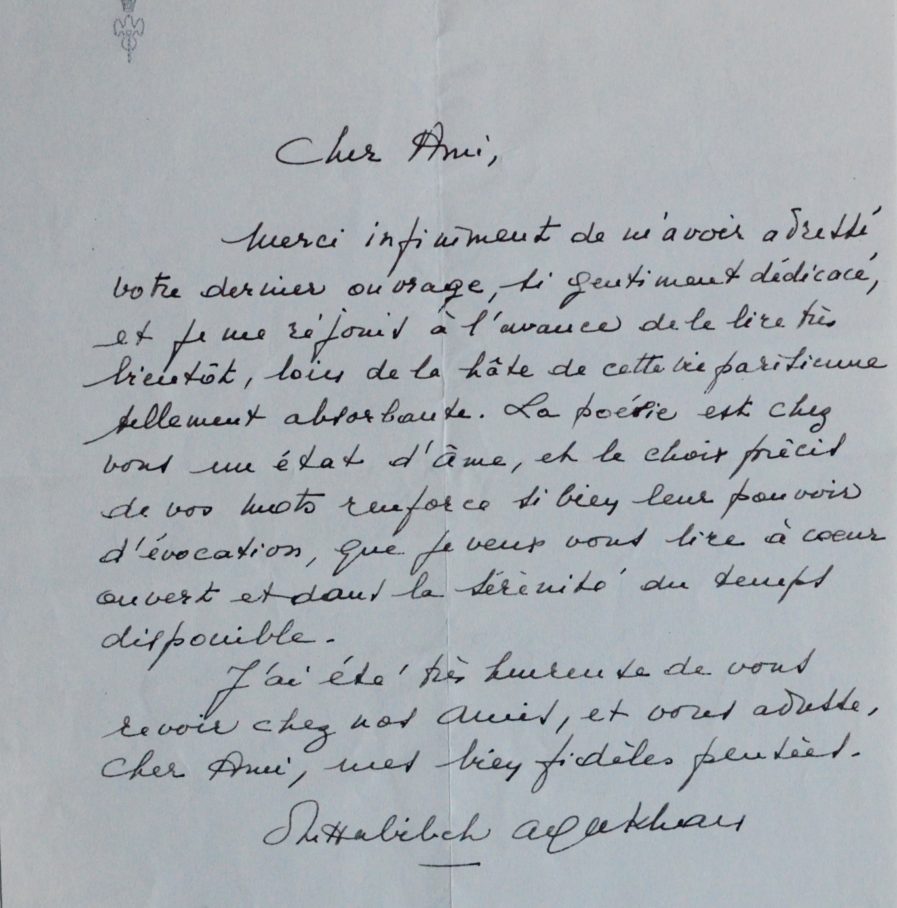 Cher Ami,
Merci infiniment de m'avoir adressé
votre dernier ouvrage, si gentiment dédicacé,
et je me réjouis à l'avance de le lire très
bientôt, loin de la hâte de cette vie parisienne
tellement absorbante. La poésie est chez
vous un état d'âme, et le choix précis
de vos mots renforce si bien leur pouvoir
d'évocation, que je veux vous lire à coeur
ouvert et dans la sérénité du temps
disponible.
J'ai été très heureuse de vous
revoir chez nos amis, et vous adresse,
Cher Ami, mes bien fidèles pensées.
Om Habibeh Aga Khan